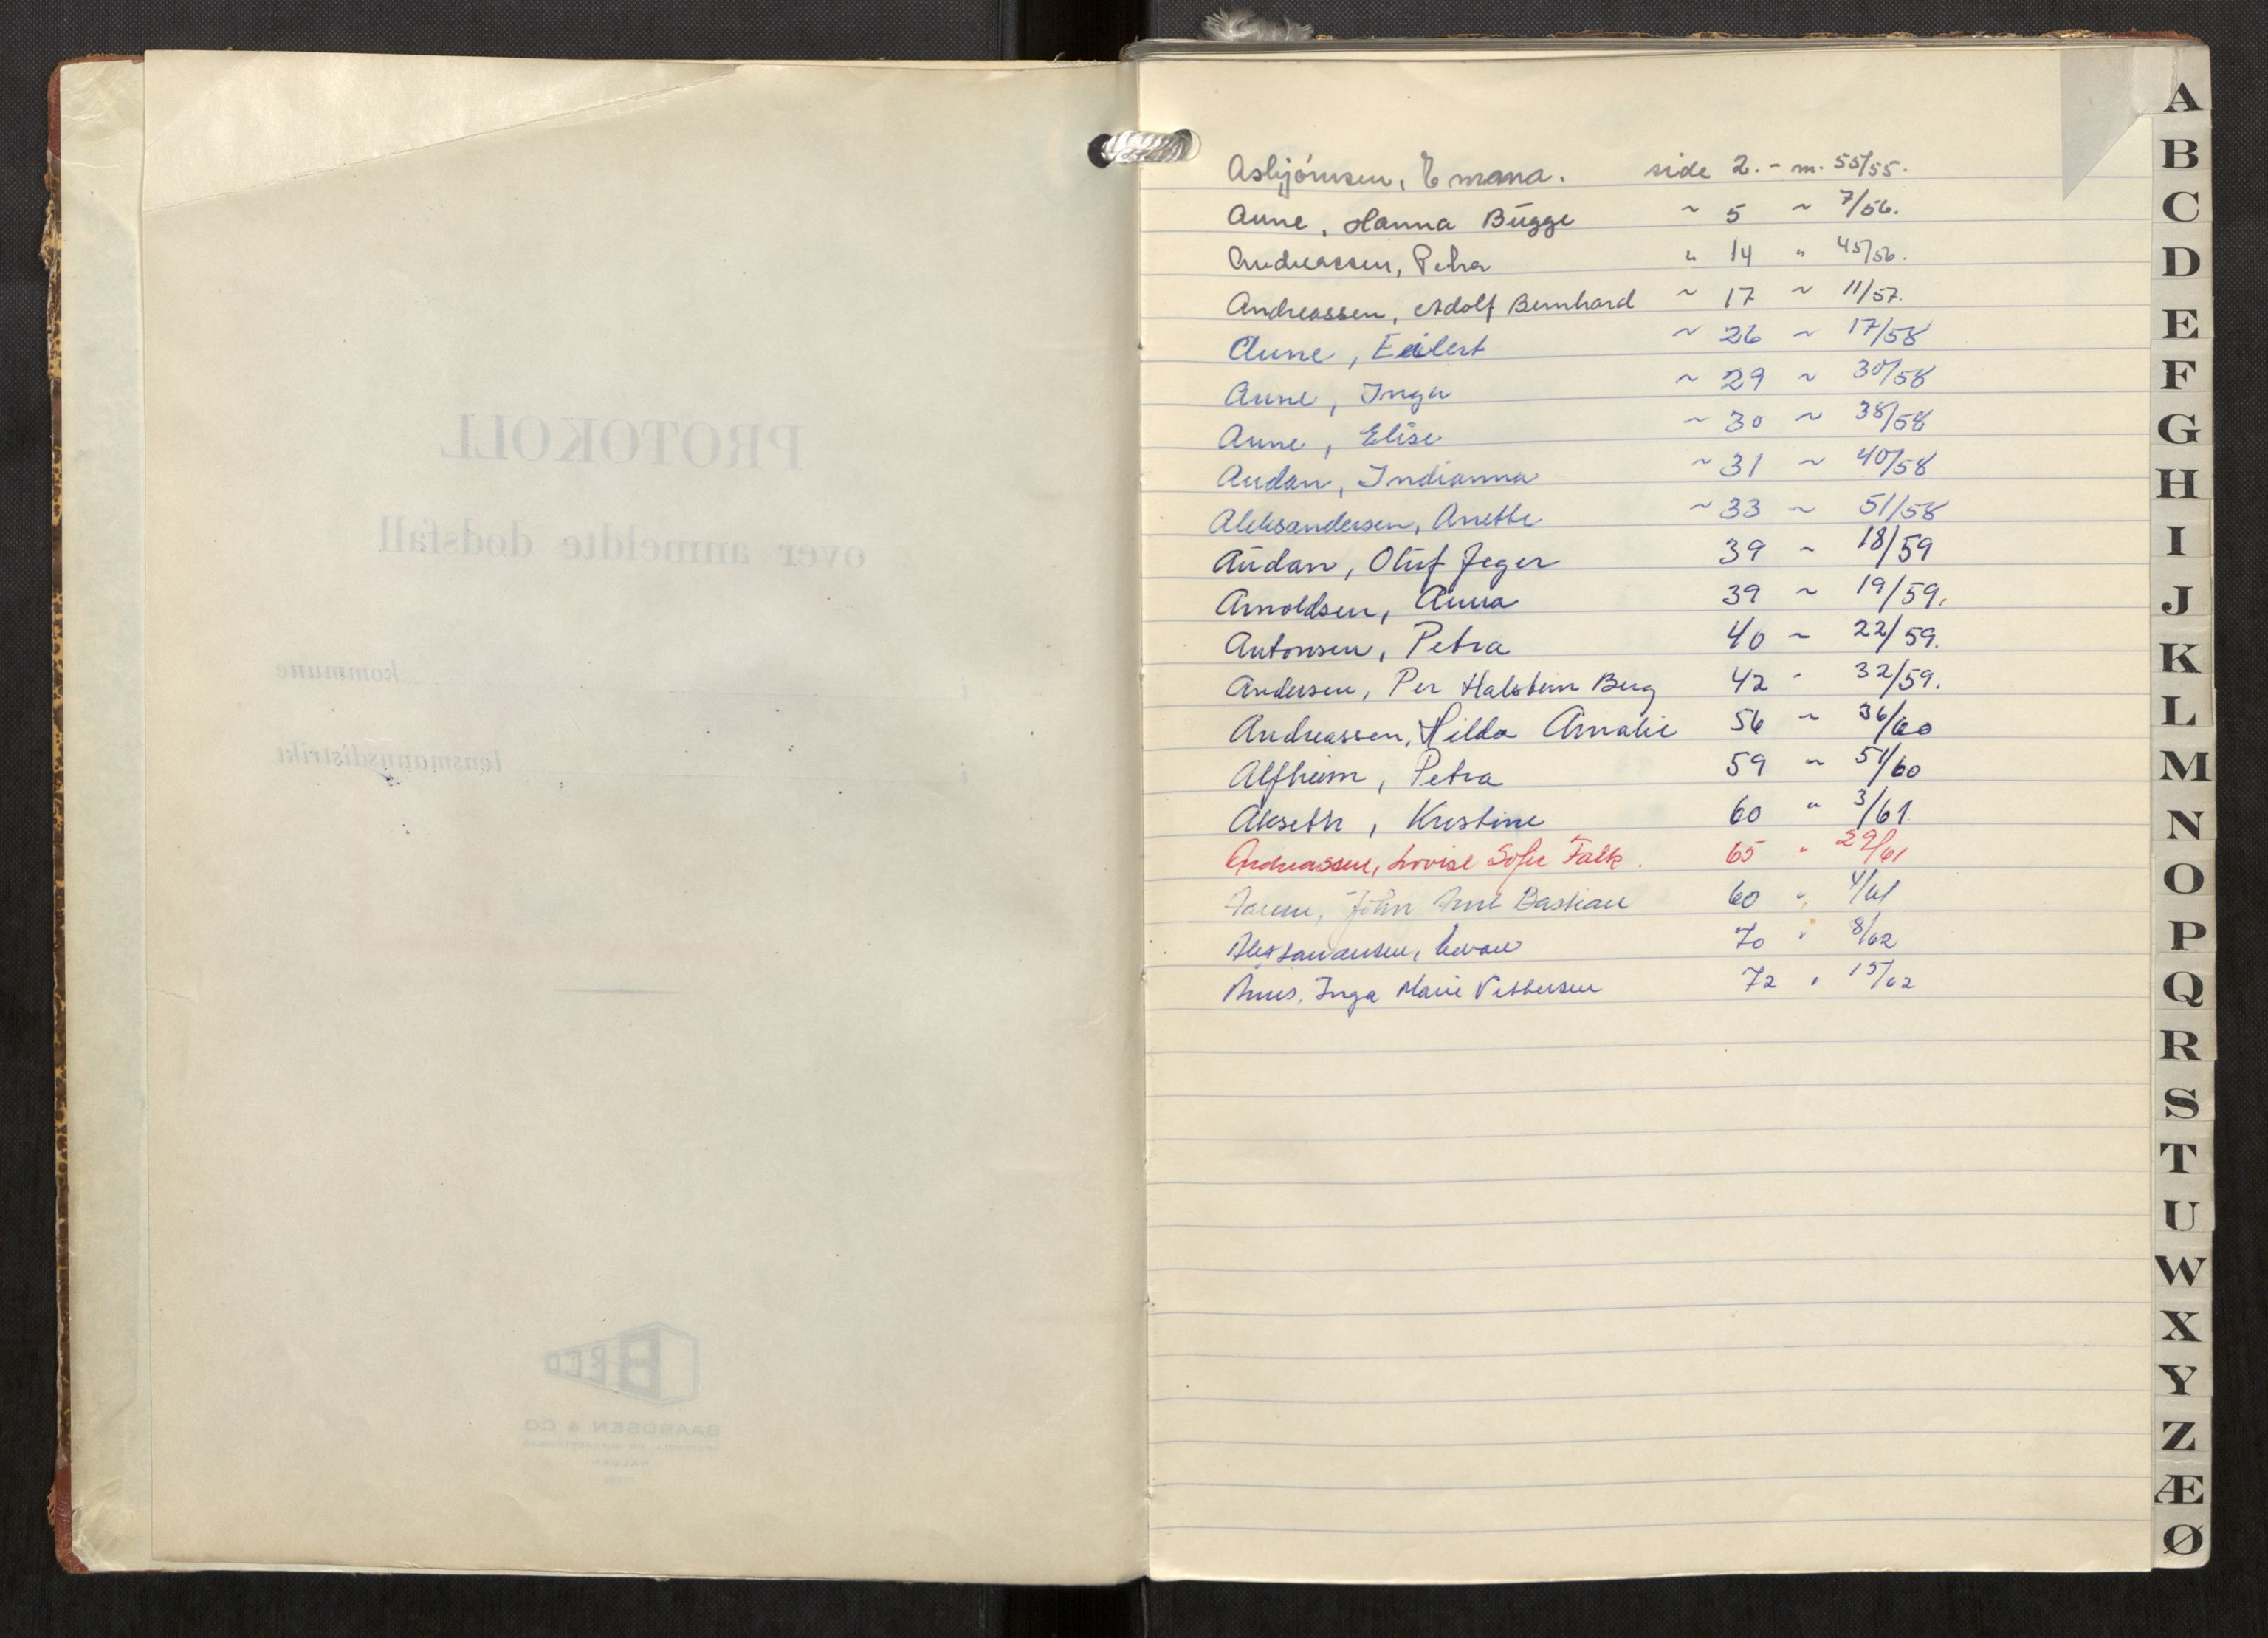 PROTOKOLL
over anmeldte dødsfall
i kommune
i lensmannsdistrikt
BRCO
BAARDSEN & CO
HALDEN
Asbjörnsen, Emana. side 2. - m. 55/55.
Aune, Hanna Bugge ~ 5 ~ 7/56.
Andreassen, Petra " 14 " 45/56.
Andreassen, Adolf Bernhard ~ 17 ~ 11/57.
Aune, Eilert ~ 26 ~ 17/58
Aune, Inga ~ 29 ~ 30/58
Aune, Elise ~ 30 ~ 38/58
Audan, Indianna ~ 31 ~ 40/58
Aleksandersen, Anette ~ 33 ~ 51/58
Audan, Oluf Jeger 39 ~ 18/59
Arnoldsen, Anna 39 ~ 19/59.
Antonsen, Petra 40 ~ 22/59.
Andersen, Per Halstein Berg 42 - 32/59.
Andreassen, Hilda Amalie 56 ~ 36/60
Alfheim, Petra 59 " 51/60
Akseth, Kristine 60 " 3/61.
Andreassen, Lovise Sofie Falk. 65 " 29/61
John Arnt Bastian 60 " 4/61
70 " 8/62
Inga Marie Pettersen 72 " 15/62
A
B
C
D
E
F
G
H
I
J
K
L
M
N
O
P
Q
R
S
T
U
W
X
Y
Z
Æ
Ø